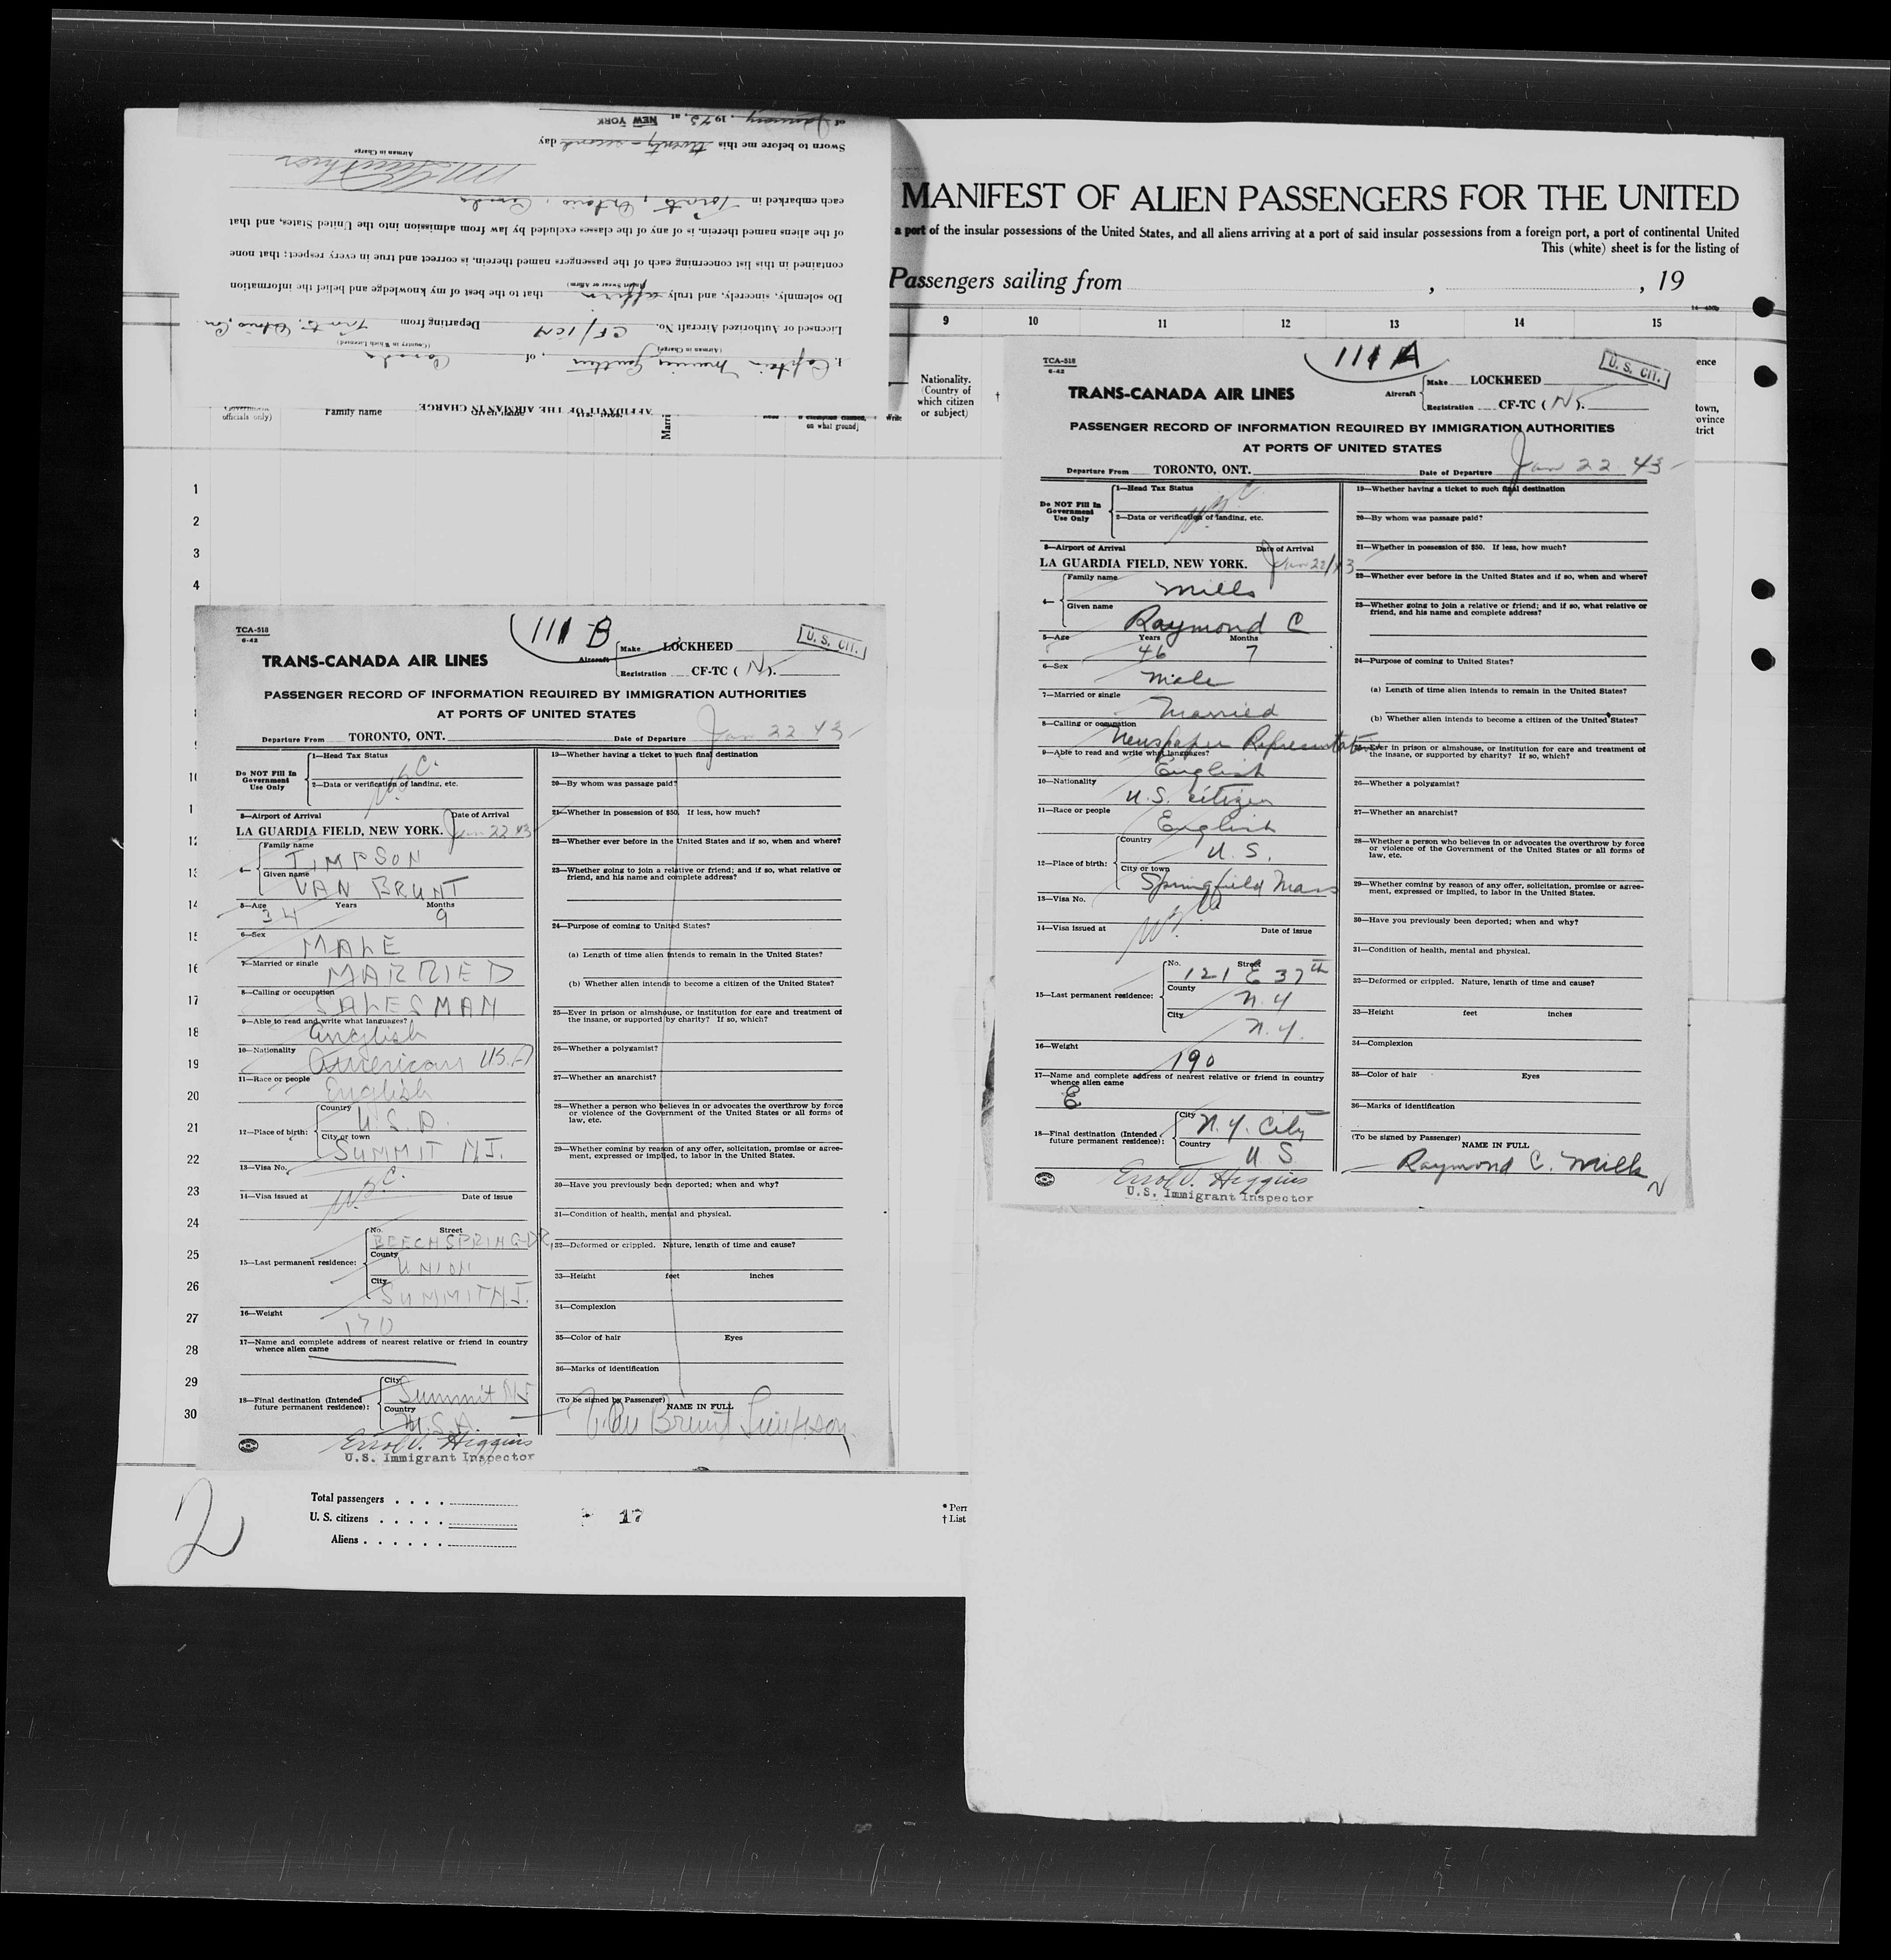 I, Captain Maurice Gauthier, of Canada
(Airman in Charge) (Country in Which Licensed)
Licensed or Authorized Aircraft No. CF/TCN Departing from Toronto, Ontario, Can
Do solemnly, sincerely, and truly affirm that to the best of my knowledge and belief the information
(Insert Swear or Affirm)
contained in this list concerning each of the passengers named therein, is correct and true in every respect; that none
of the aliens named therein, is of any of the classes excluded by law from admission into the United States, and that
each embarked in Toronto, Ontario, Canada
Airman in Charge
Sworn to before me this twenty-second day
of January, 1943, at, NEW YORK
AFFIDAVIT OF THE AIRMAN IN CHARGE
officials only)
Family name
Given name
Marri
on what ground]
MANIFEST OF ALIEN PASSENGERS FOR THE UNITED
a port of the insular possessions of the United States, and all aliens arriving at a port of said insular possessions from a foreign port, a port of continental United
This (white) sheet is for the listing of
Passengers sailing from , , 19
9 10 11 12 13 14 15
Nationality.
(Country of
which citizen
or subject)
†
ence
town,
ovince
trict
1
2
3
4
TCA-518
6-42
111 B
U. S. CIT.
TRANS-CANADA AIR LINES
Aircraft
Make LOCKHEED
Registration CF-TC (N).
PASSENGER RECORD OF INFORMATION REQUIRED BY IMMIGRATION AUTHORITIES
AT PORTS OF UNITED STATES
Departure From TORONTO, ONT. Date of Departure Jan 22 43
Do NOT Fill In
Government
Use Only
1—Head Tax Status
2—Data or verification of landing, etc.
3—Airport of Arrival Date of Arrival
LA GUARDIA FIELD, NEW YORK. Jan 22 43
4—
Family name TIMPSON
Given name VAN BRUNT
5—Age 34 Years Months 9
6—Sex MALE
7—Married or single MARRIED
8—Calling or occupation SALESMAN
9—Able to read and write what languages? English
10—Nationality American USA
11—Race or people English
12—Place of birth:
Country U.S.A.
City or town SUMMIT N.J.
13—Visa No.
14—Visa issued at Date of issue
15—Last permanent residence:
No. Street BEECHSPRING DR.
County UNION
City SUMMIT N.J.
16—Weight 170
17—Name and complete address of nearest relative or friend in country
whence alien came
18—Final destination (Intended
future permanent residence):
City Summit NJ
Country U.S.A.
Errol V. Higgins
U.S. Immigrant Inspector
19—Whether having a ticket to such final destination
20—By whom was passage paid?
21—Whether in possession of $50. If less, how much?
22—Whether ever before in the United States and if so, when and where?
23—Whether going to join a relative or friend; and if so, what relative or
friend, and his name and complete address?
24—Purpose of coming to United States?
(a) Length of time alien intends to remain in the United States?
(b) Whether alien intends to become a citizen of the United States?
25—Ever in prison or almshouse, or institution for care and treatment of
the insane, or supported by charity? If so, which?
26—Whether a polygamist?
27—Whether an anarchist?
28—Whether a person who believes in or advocates the overthrow by force
or violence of the Government of the United States or all forms of
law, etc.
29—Whether coming by reason of any offer, solicitation, promise or agree-
ment, expressed or implied, to labor in the United States.
30—Have you previously been deported; when and why?
31—Condition of health, mental and physical.
32—Deformed or crippled. Nature, length of time and cause?
33—Height feet inches
34—Complexion
35—Color of hair Eyes
36—Marks of identification
(To be signed by Passenger)
NAME IN FULL
Van Brunt Timpson
12
13
14
16
17
18
19
20
21
22
23
24
25
26
27
28
29
30
TCA-518
6-42
111 A
U. S. CIT.
TRANS-CANADA AIR LINES
Aircraft
Make LOCKHEED
Registration CF-TC (N).
PASSENGER RECORD OF INFORMATION REQUIRED BY IMMIGRATION AUTHORITIES
AT PORTS OF UNITED STATES
Departure From TORONTO, ONT. Date of Departure Jan 22 43
Do NOT Fill In
Government
Use Only
1—Head Tax Status
2—Data or verification of landing, etc.
3—Airport of Arrival Date of Arrival
LA GUARDIA FIELD, NEW YORK. Jan 22/43
4—
Family name Mills
Given name Raymond C
5—Age Years 46 Months 7
6—Sex Male
7—Married or single Married
8—Calling or occupation Newspaper Representative
9—Able to read and write what languages? English
10—Nationality U.S. citizen
11—Race or people English
12—Place of birth:
Country U.S.
City or town Springfield Mass
13—Visa No.
14—Visa issued at Date of issue
15—Last permanent residence:
No. Street 121 E 37th
County N.Y
City N.Y.
16—Weight 190
17—Name and complete address of nearest relative or friend in country
whence alien came
18—Final destination (Intended
future permanent residence):
City N.Y. City
Country U.S.
Errol V. Higgins
U.S. Immigrant Inspector
19—Whether having a ticket to such final destination
20—By whom was passage paid?
21—Whether in possession of $50. If less, how much?
22—Whether ever before in the United States and if so, when and where?
23—Whether going to join a relative or friend; and if so, what relative or
friend, and his name and complete address?
24—Purpose of coming to United States?
(a) Length of time alien intends to remain in the United States?
(b) Whether alien intends to become a citizen of the United States?
25—Ever in prison or almshouse, or institution for care and treatment of
the insane, or supported by charity? If so, which?
26—Whether a polygamist?
27—Whether an anarchist?
28—Whether a person who believes in or advocates the overthrow by force
or violence of the Government of the United States or all forms of
law, etc.
29—Whether coming by reason of any offer, solicitation, promise or agree-
ment, expressed or implied, to labor in the United States.
30—Have you previously been deported; when and why?
31—Condition of health, mental and physical.
32—Deformed or crippled. Nature, length of time and cause?
33—Height feet inches
34—Complexion
35—Color of hair Eyes
36—Marks of identification
(To be signed by Passenger)
NAME IN FULL
Raymond C. Mills
N
2
Total passengers . . . .
U. S. citizens . . . . .
Aliens . . . . . .
17
* Perr
† List